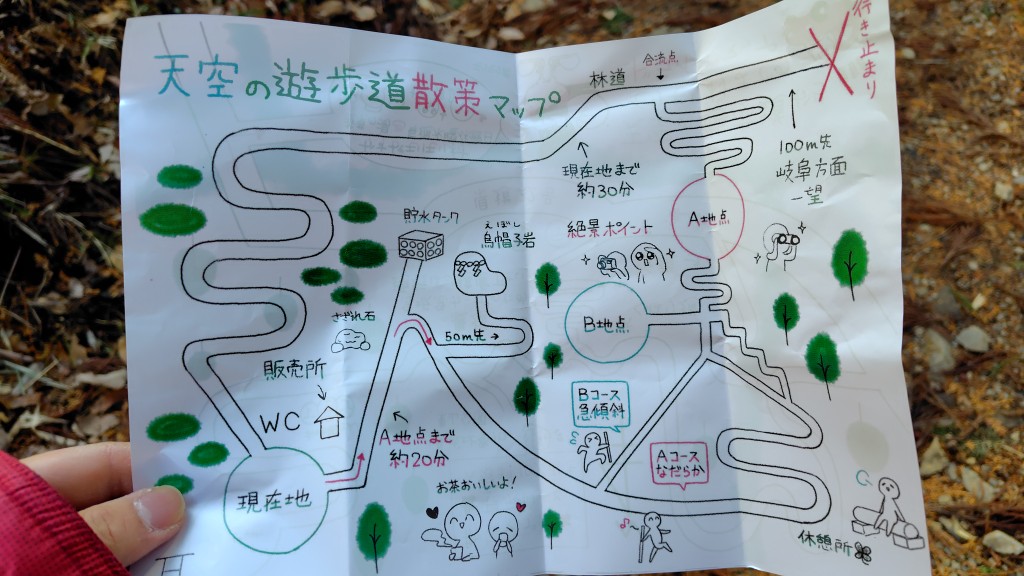 天空の遊歩道散策マップ
行き止まり
合流点
林道
100m先
岐阜方面
一望
現在地まで
約30分
A地点
貯水タンク
えぼし
烏帽子岩
絶景ポイント
B地点
さざれ石
50m先→
販売所
WC
Bコース
急傾斜
A地点まで
約20分
Aコース
なだらか
現在地
お茶おいしいよ!
休憩所